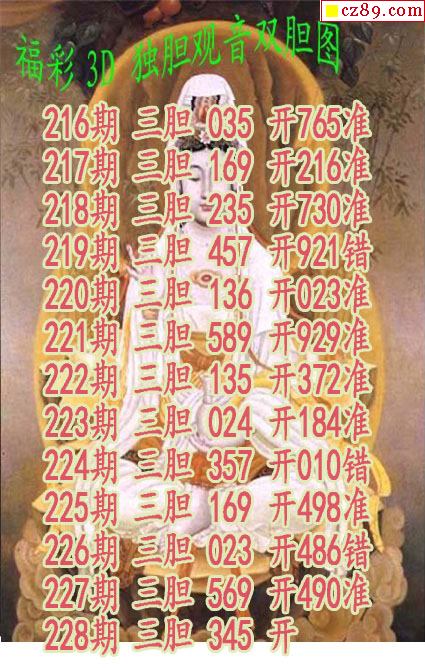 cz89.com
福彩 3D 独胆观音双胆图
216期 三胆 035 开765准
217期 三胆 169 开216准
218期 三胆 235 开730准
219期 三胆 457 开921错
220期 三胆 136 开023准
221期 三胆 589 开929准
222期 三胆 135 开372准
223期 三胆 024 开184准
224期 三胆 357 开010错
225期 三胆 169 开498准
226期 三胆 023 开486错
227期 三胆 569 开490准
228期 三胆 345 开